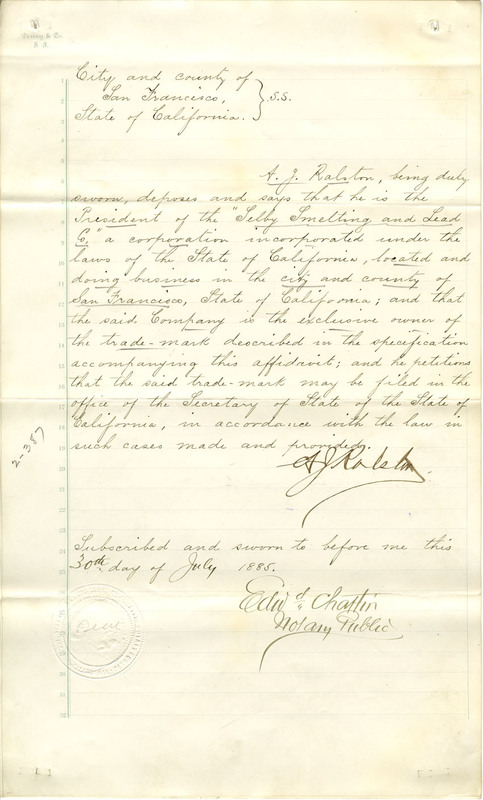 City and county of
San Francisco, } S.S.
State of California.
A. J. Ralston, being duly
sworn, deposes and says that he is the
President of the "Selby Smelting and Lead
Co." a corporation incorporated under the
laws of the State of California, located and
doing business in the city and county of
San Francisco, State of California; and that
the said Company is the exclusive owner of
the trade-mark described in the specification
accompanying this affidavit; and he petitions
that the said trade-mark may be filed in the
office of the Secretary of State of the State of
California, in accordance with the law in
such cases made and provided.
A J Ralston
2-387
Subscribed and sworn to before me this
30th day of July 1885.
Notary Public